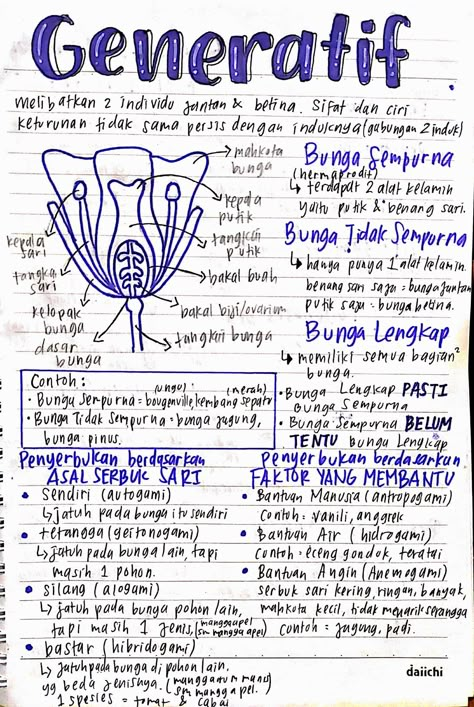 Generatif
melibatkan 2 individu jantan & betina. Sifat dan ciri
keturunan tidak sama persis dengan induknya (gabungan 2 induk)
mahkota
bunga
kepala
putik
tangkai
putik
bakal buah
bakal biji/ovarium
tangkai bunga
kepala
sari
tangkai
sari
kelopak
bunga
dasar
bunga
Bunga Sempurna
(hermaprodit)
↳ terdapat 2 alat kelamin
yaitu putik & benang sari.
Bunga Tidak Sempurna
↳ hanya punya 1 alat kelamin
benang sari saja : bunga jantan
putik saja : bunga betina.
Bunga Lengkap
↳ memiliki semua bagian²
bunga.
• Bunga Lengkap PASTI
Bunga Sempurna
• Bunga Sempurna BELUM
TENTU Bunga Lengkap
Contoh :
(ungu) (merah)
• Bunga Sempurna = bougenville, kembang sepatu
• Bunga Tidak Sempurna = bunga jagung,
bunga pinus.
Penyerbukan berdasarkan
ASAL SERBUK SARI
• Sendiri (autogami)
↳ jatuh pada bunga itu sendiri
• tetangga (geitonogami)
↳ jatuh pada bunga lain, tapi
masih 1 pohon.
• silang (alogami)
↳ jatuh pada bunga pohon lain,
tapi masih 1 jenis,
• bastar (hibridogami)
↳ jatuh pada bunga di pohon lain.
yg beda jenisnya.
1 spesies = tomat & cabai
Penyerbukan berdasarkan
FAKTOR YANG MEMBANTU
• Bantuan Manusia (antropogami)
Contoh : vanili, anggrek
• Bantuan Air (hidrogami)
Contoh : eceng gondok, teratai
• Bantuan Angin (Anemogami)
serbuk sari kering, ringan, banyak,
mahkota kecil, tidak menarik serangga
contoh : jagung, padi.
daiichi